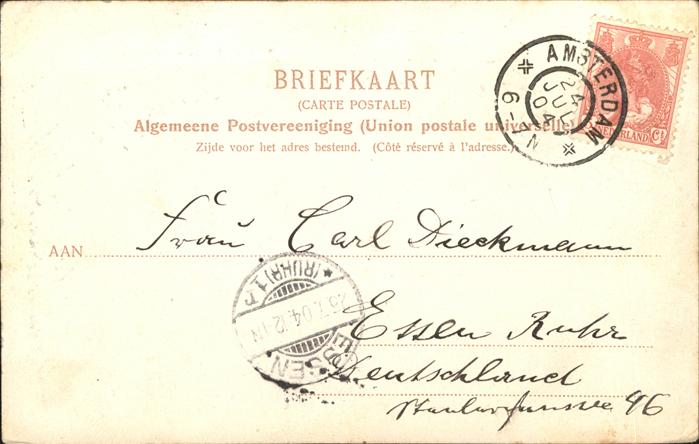 BRIEFKAART
(CARTE POSTALE)
Algemeene Postvereeniging (Union postale universelle)
Zijde voor het adres bestemd. (Côté réservé à l'adresse.)
AMSTERDAM
24 JUL 04
6-7N
NEDERLAND Ct
AAN Frau Carl Dieckmann
Essen Ruhr
Deutschland
46
ESSEN (RUHR) 1
25.7.04.12-1N